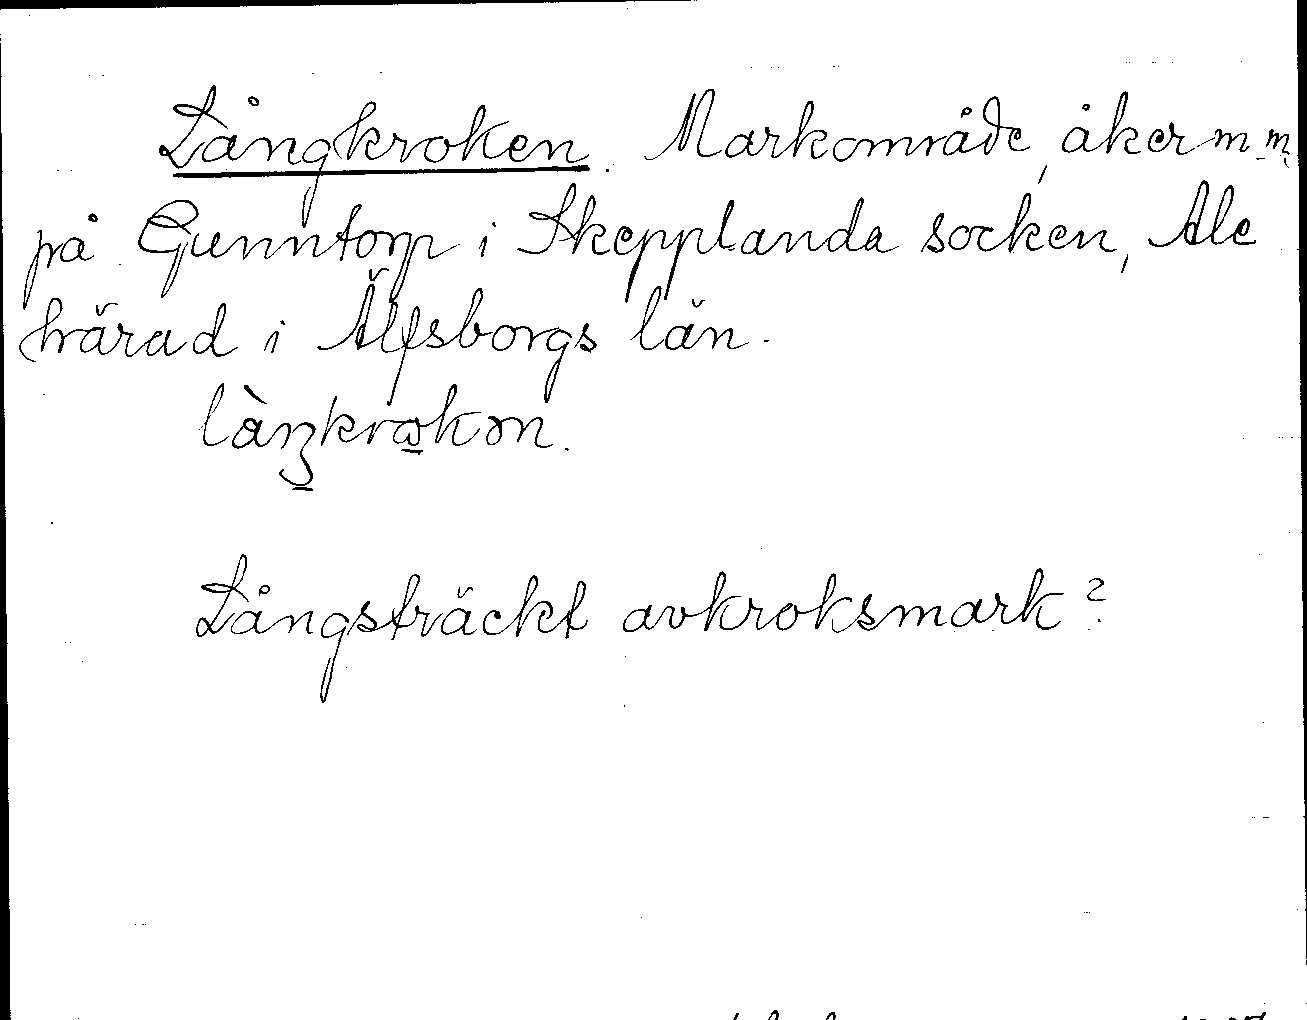 Långkroken. Markområde, åker m.m.
på Gunntorp i Skepplanda socken, Ale
härad i Älfsborgs län.
làŋkrωkən.
Långsträckt avkroksmark?